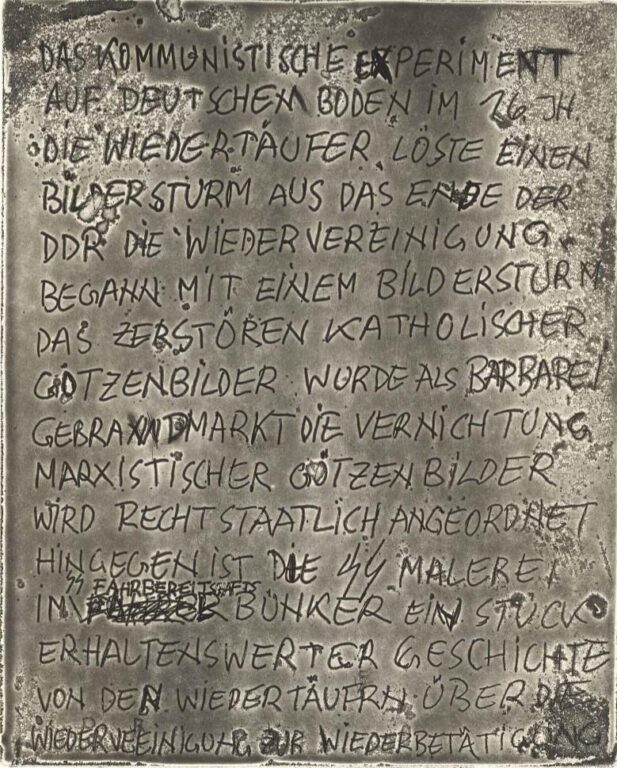 DAS KOMMUNISTISCHE EXPERIMENT
AUF DEUTSCHEM BODEN IM 16. JH.
DIE WIEDERTÄUFER LÖSTE EINEN
BILDERSTURM AUS DAS ENDE DER
DDR DIE WIEDERVEREINIGUNG
BEGANN MIT EINEM BILDERSTURM
DAS ZERSTÖREN KATHOLISCHER
GÖTZENBILDER WURDE ALS BARBAREI
GEBRANDMARKT DIE VERNICHTUNG
MARXISTISCHER GÖTZENBILDER
WIRD RECHTSTAATLICH ANGEORDNET
HINGEGEN IST DIE SS MALEREI
SS FAHRBEREITSCHAFTS
IM BUNKER EIN STÜCK
ERHALTENSWERTER GESCHICHTE
VON DEN WIEDERTÄUFERN ÜBER DIE
WIEDERVEREINIGUNG ZUR WIEDERBETÄTIGUNG